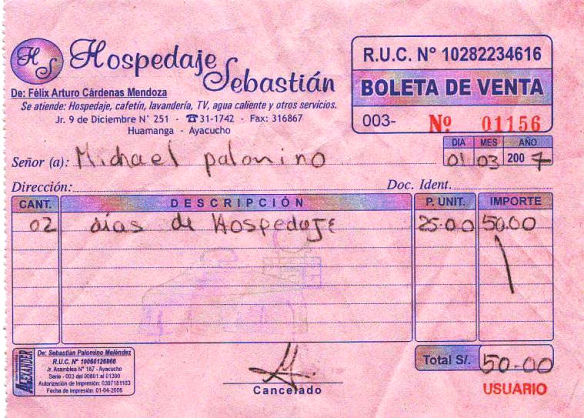 HS Hospedaje Sebastián
De: Félix Arturo Cárdenas Mendoza
Se atiende: Hospedaje, cafetín, lavandería, TV, agua caliente y otros servicios.
Jr. 9 de Diciembre N° 251 - ☎31-1742 - Fax: 316867
Huamanga - Ayacucho
R.U.C. N° 10282234616
BOLETA DE VENTA
003- Nº 01156
DIA MES AÑO
01 03 2007
Señor (a): Michael palomino
Dirección: Doc. Ident.
CANT. DESCRIPCIÓN P. UNIT. IMPORTE
02 días de Hospedaje 25.00 50.00
ALEXANDER
De: Sebastián Palomino Meléndez
R.U.C. N° 10060126966
Jr. Asamblea N° 187 - Ayacucho
Serie - 003 del 00801 al 01300
Autorización de Impresión: 0307181103
Fecha de Impresión: 01-04-2006
Cancelado
Total S/. 50.00
USUARIO